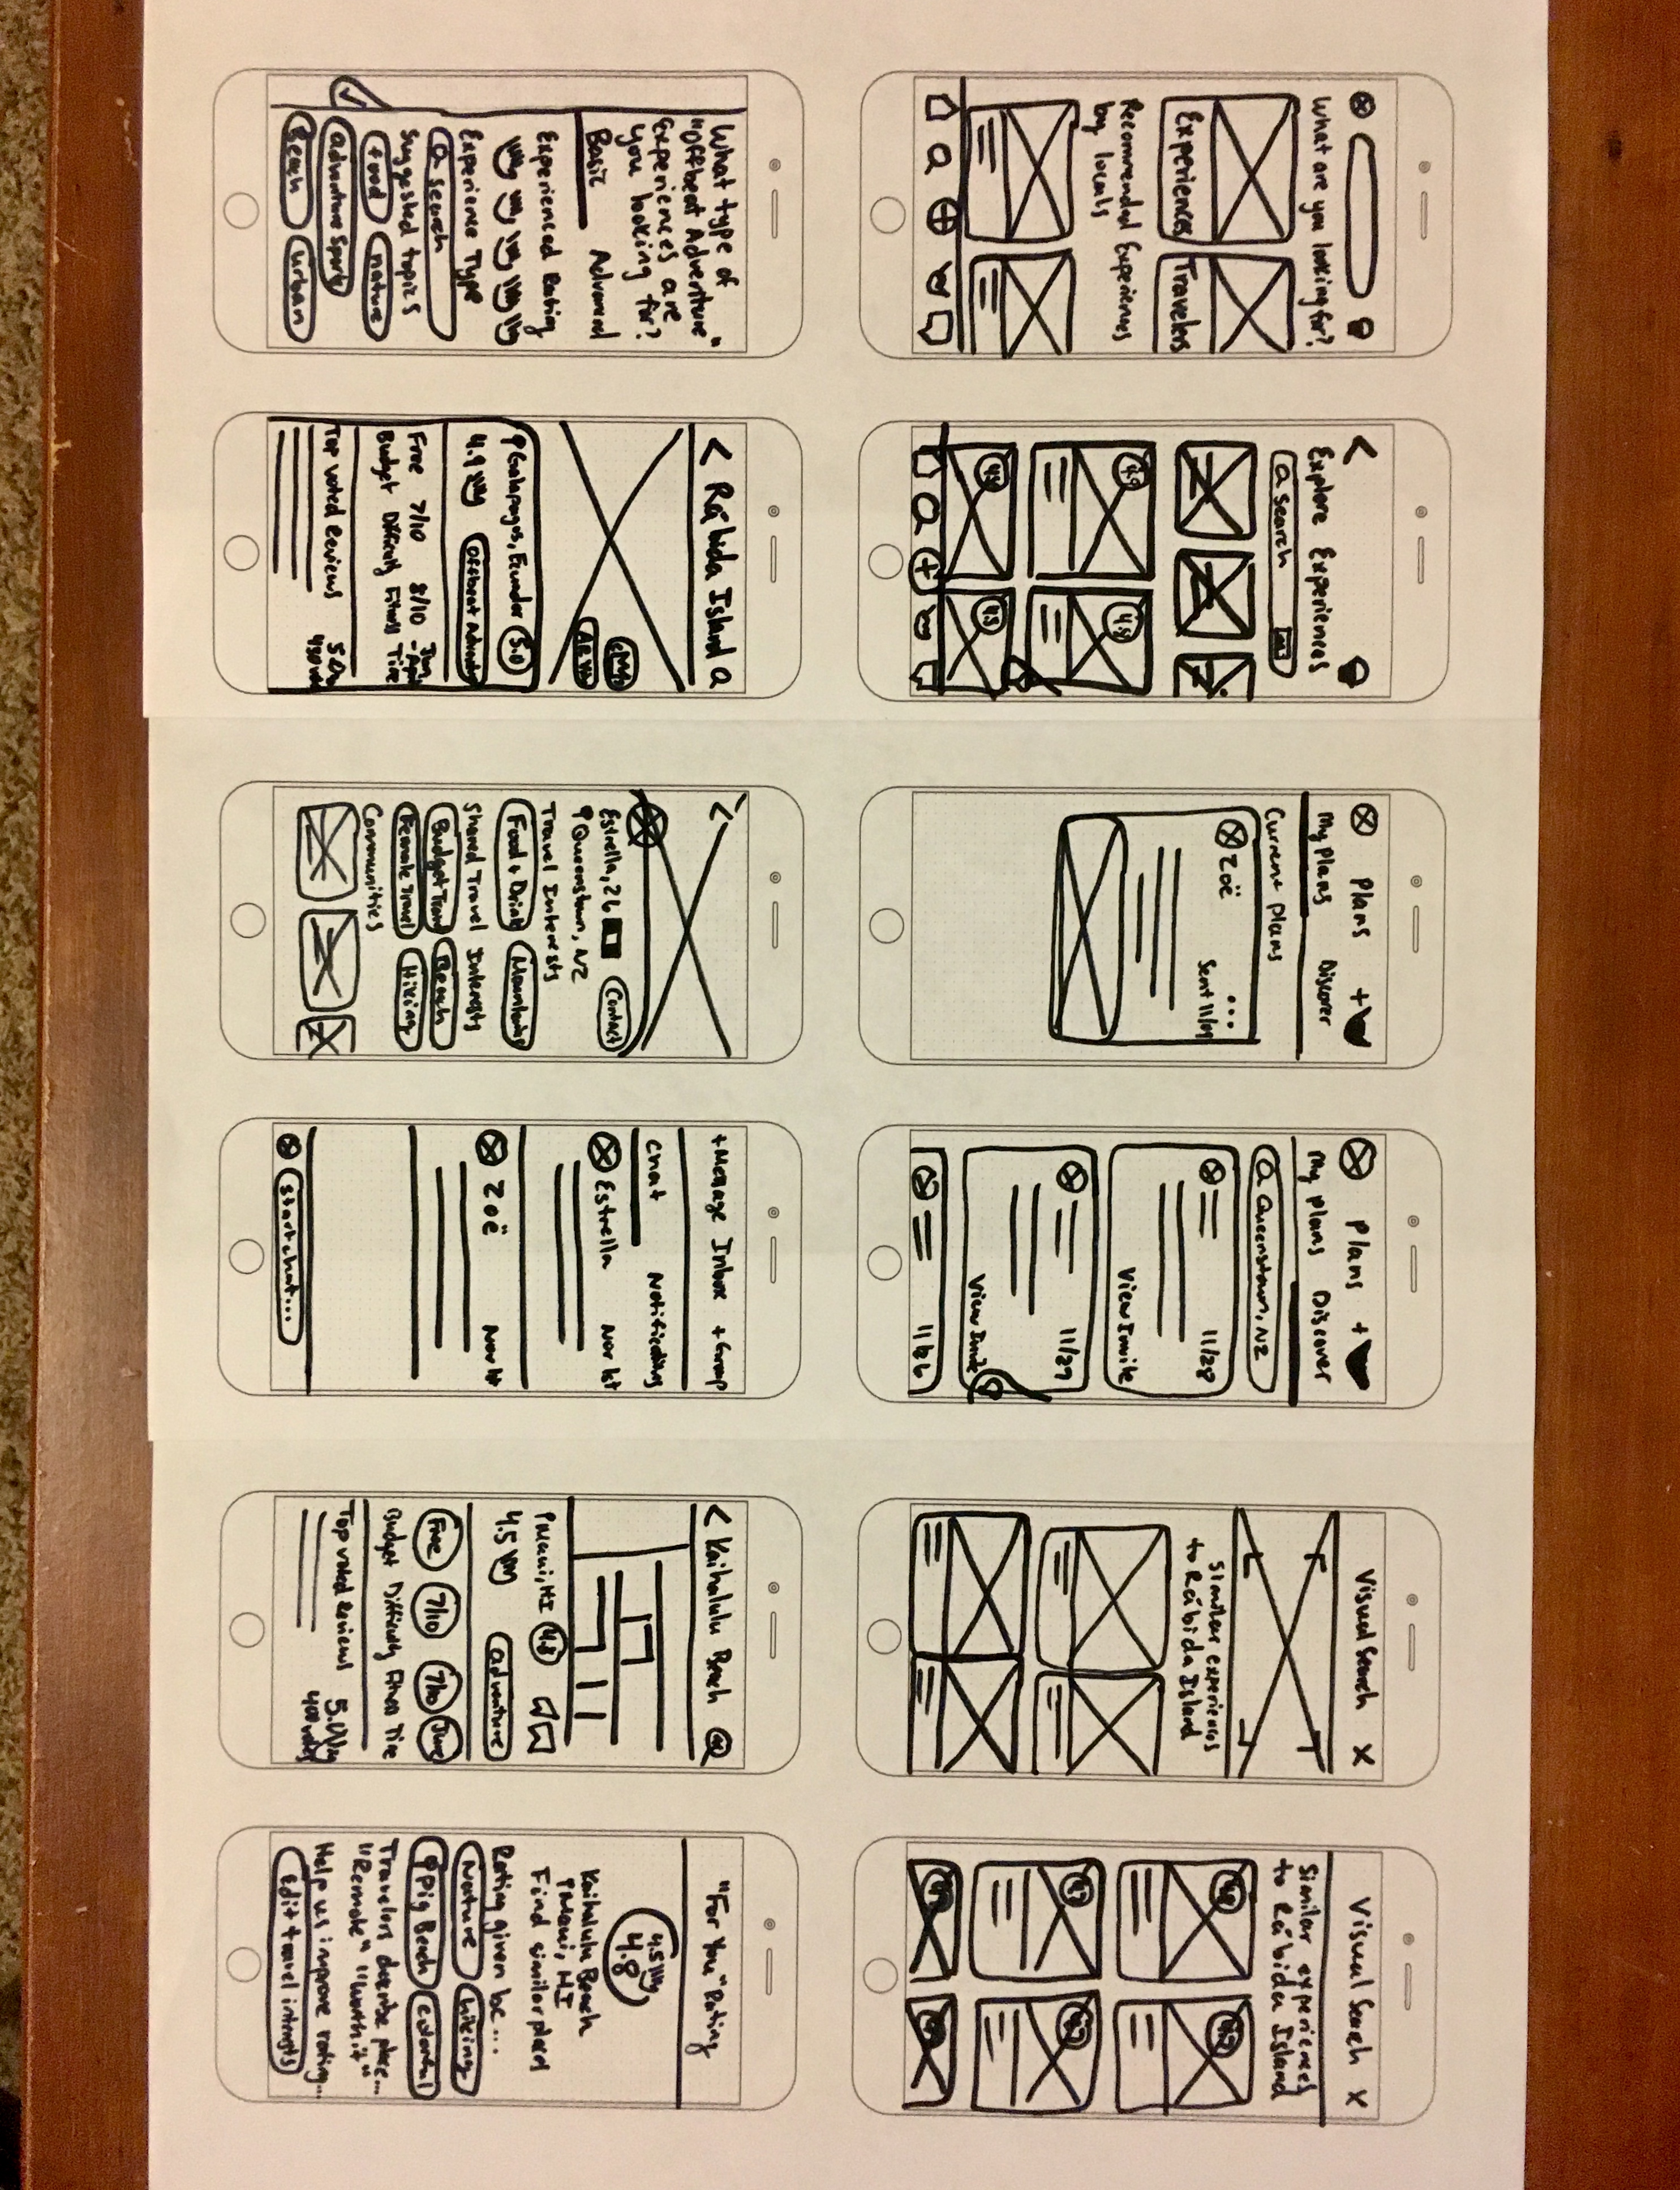 What are you looking for?
Experiences
Travelers
Recommended Experiences
by locals
Explore Experiences
search
4.9
4.9
Plans +
My Plans Discover
Current plans
Zoë
...
Sent 11/19
Plans +
My plans Discover
Queenstown, NZ
11/28
View Invite
11/27
View Invite
11/26
Visual Search X
Similar experiences
to Rábida Island
Visual Search X
Similar experiences
to Rábida Island
What type of
"Offbeat Adventure"
experiences are
you looking for?
Basic Advanced
Experienced Rating
Experience Type
search
Suggested topics
food nature
adventure sports
Beach urban
< Rábida Island
Galapagos, Ecuador 5.0
4.9 Offbeat Adventure
Free 7/10 8/10 Jun
Budget Difficulty Fitness Time
Top voted Reviews 5.0
<
Estrella, 26
Queenstown, NZ Contact
Travel Interests
Food + Drink Mountains
Shared Travel Interests
Budget Travel Beach
Female Travel Hiking
Communities
+Message Inbox +Group
Chat Notifications
Estrella
Zoë
Start chat...
< Kaihalulu Beach
Maui, HI 4.8
4.5 adventure
Free 7/10 7/10 June
Budget Difficulty Fitness Time
Top voted Reviews 5.0
"For You" Rating
4.5
4.8
Kaihalulu Beach
Maui, HI
Find similar places
Rating given be...
Nature Hiking
Pig Beach Colorful
Travelers describe place...
"Remote" "Worth it"
Help us improve rating...
Edit travel interests